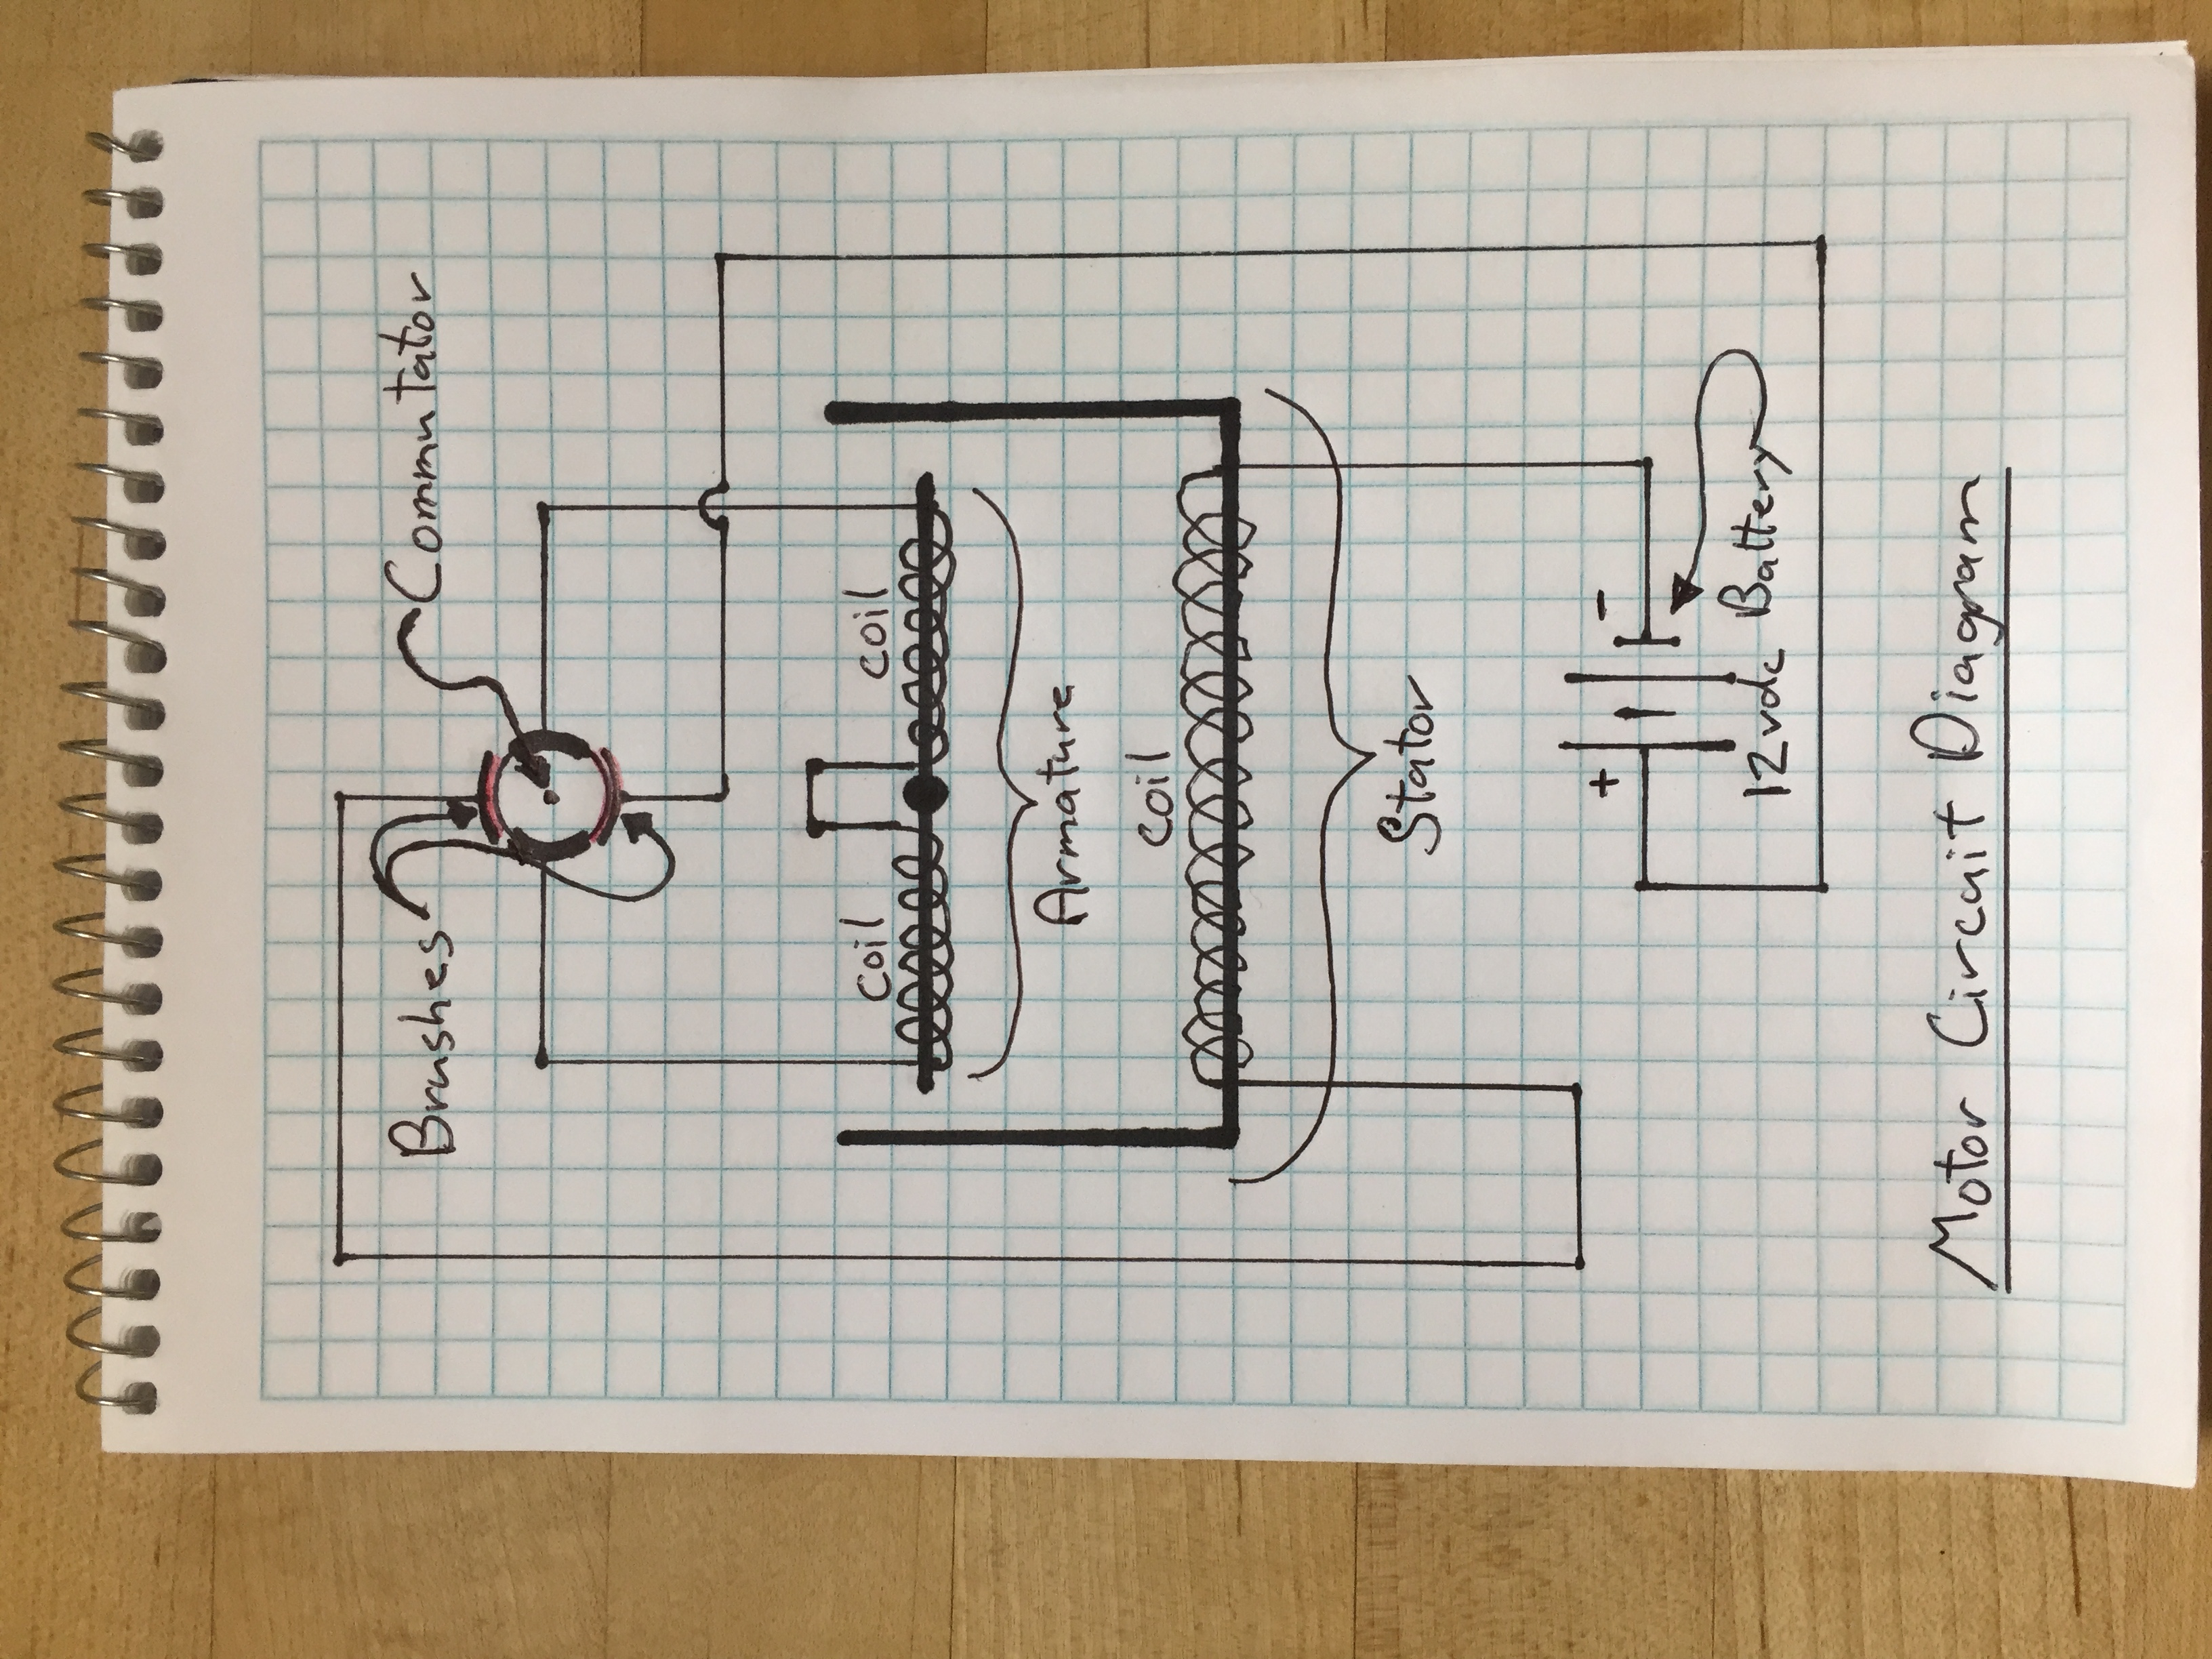 Brushes
Commutator
coil
coil
Armature
coil
Stator
+
-
12vdc Battery
Motor Circuit Diagram